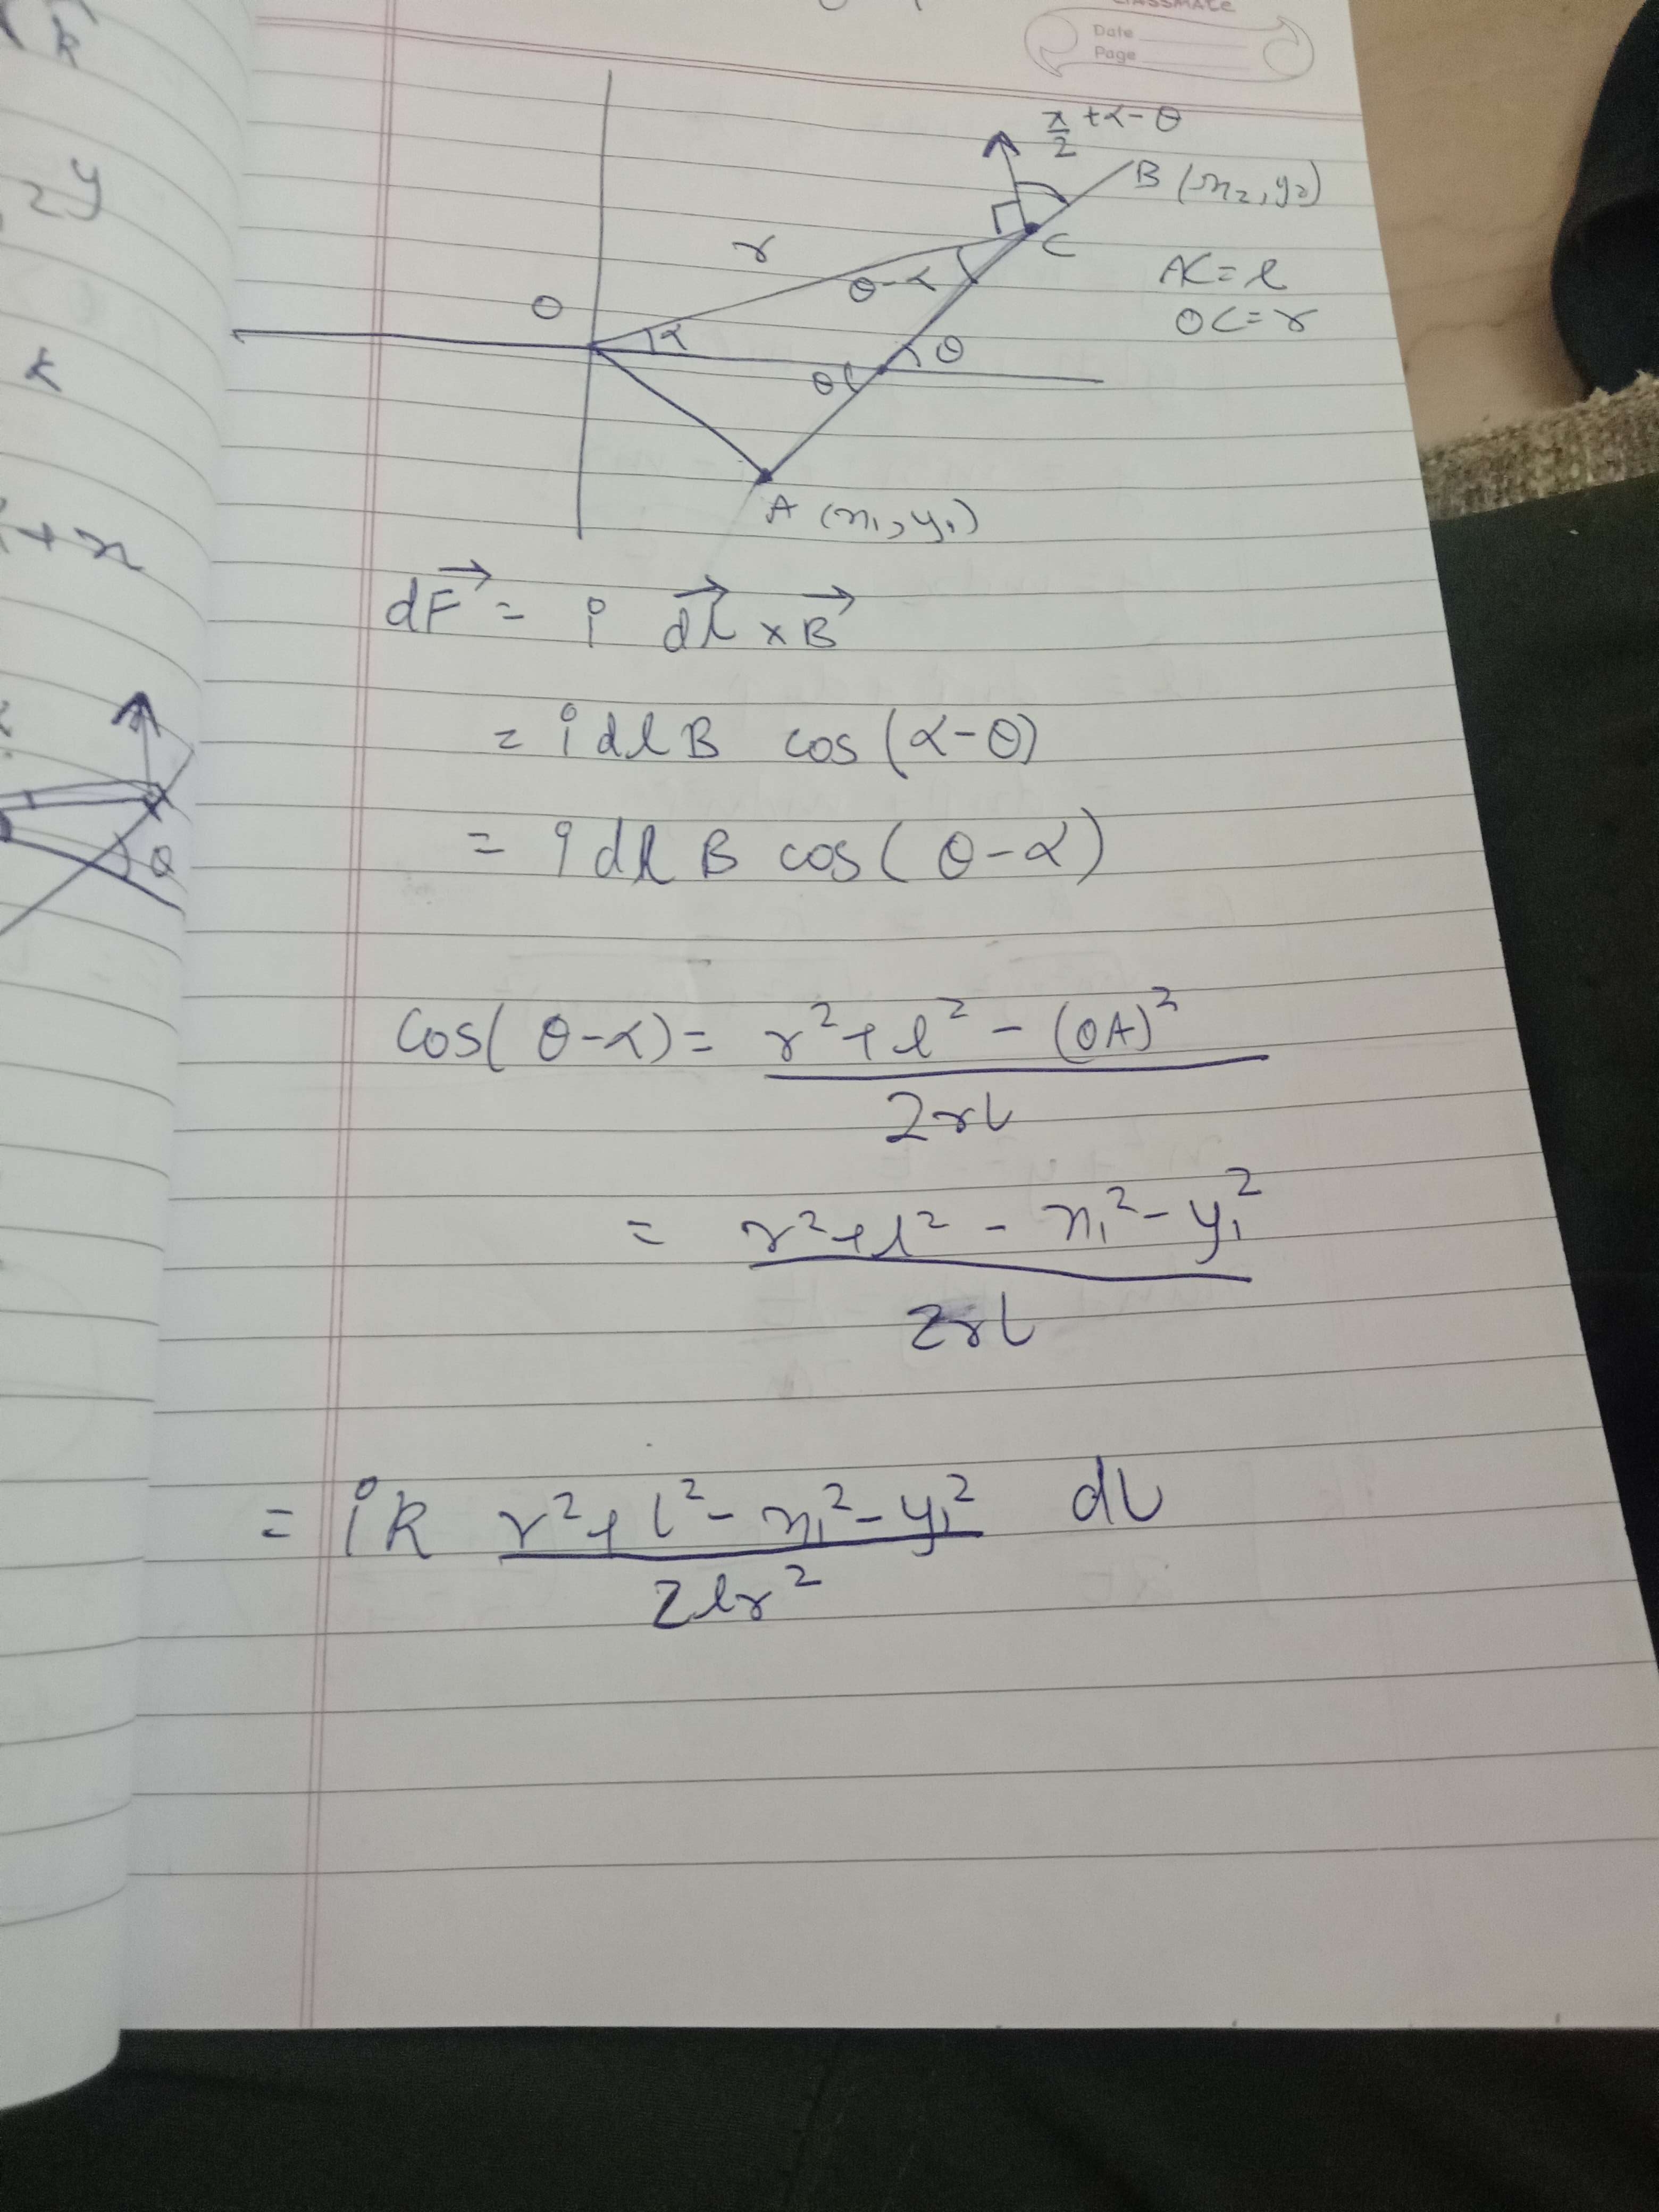 classmate
Date
Page
π/2 + α - θ
B (x₂, y₂)
r
C
θ-α
AC = l
OC = r
O
α
θ
θ
A (x₁, y₁)
dF⃗ = i dl⃗ × B⃗
= i dl B cos (α-θ)
= i dl B cos (θ-α)
cos(θ-α) = r² + l² - (OA)² / 2rl
= r² + l² - x₁² - y₁² / 2rl
= i k r² + l² - x₁² - y₁² / 2lr² dl
k
2y
k
+ x
θ